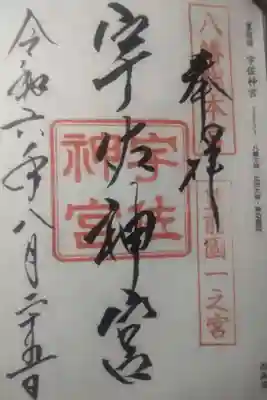 奉拝
八幡総本宮
豊前国一之宮
宇佐神宮
宇佐
神宮
令和六年八月二十五日
宇佐神宮